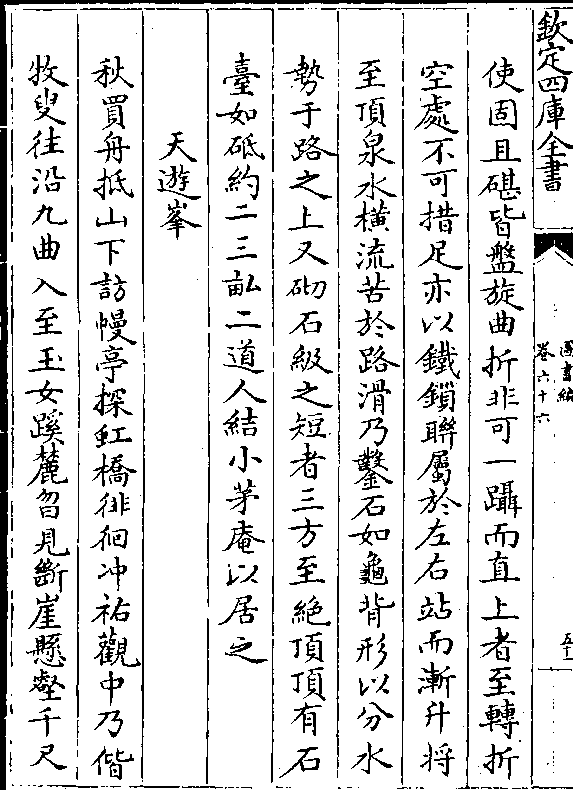 欽定四庫全書
圖書編
卷六十六
使固且磡皆盤旋曲折非可一躡而直上者至轉折
空處不可措足亦以鐵鎖聯屬於左右站而漸升將
至頂泉水橫流苦於路滑乃鑿石如龜背形以分水
勢于路之上又砌石級之短者三方至絕頂頂有石
臺如砥約二三畝二道人結小茅庵以居之
天遊峯
秋買舟抵山下訪幔亭探虹橋徘徊冲祐觀中乃偕
牧叟往沿九曲入至玉女蹊麓曶見斷崖懸壑千尺